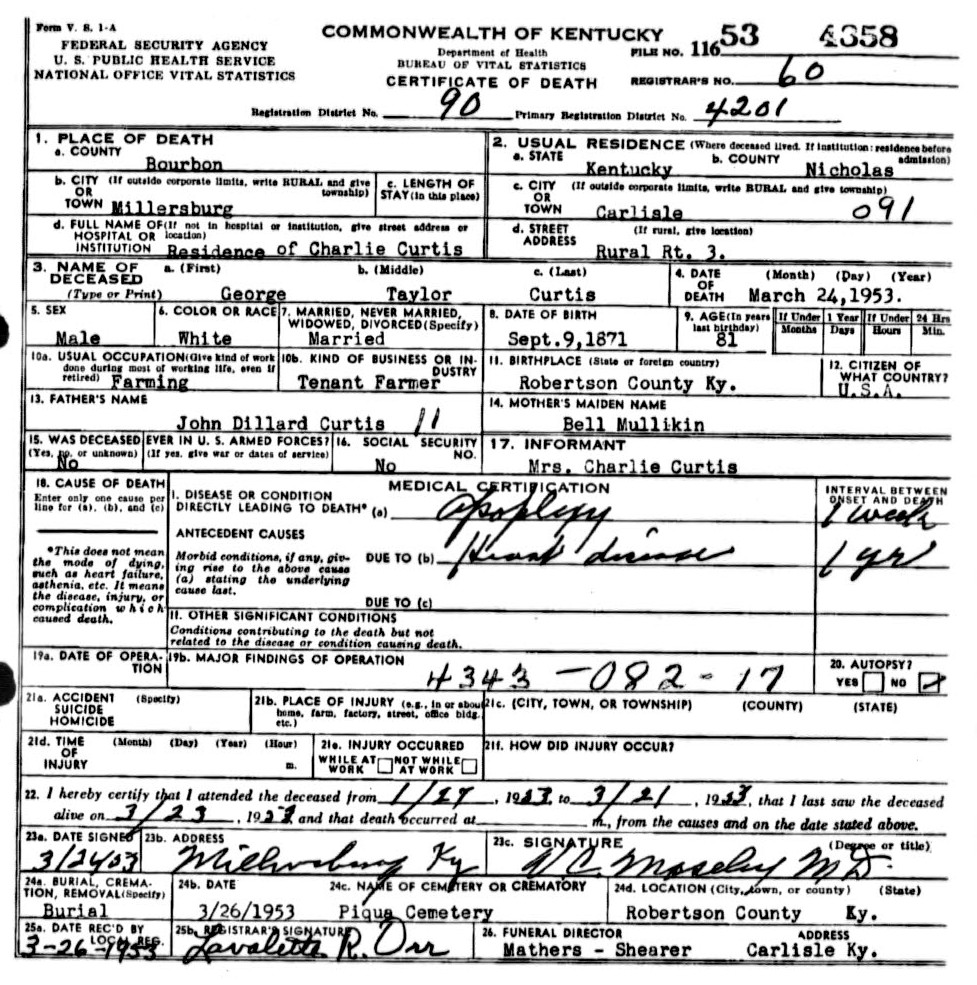 Form V. S. 1-A
FEDERAL SECURITY AGENCY
U. S. PUBLIC HEALTH SERVICE
NATIONAL OFFICE VITAL STATISTICS
COMMONWEALTH OF KENTUCKY
Department of Health
BUREAU OF VITAL STATISTICS
CERTIFICATE OF DEATH
FILE NO. 116 53 4358
REGISTRAR'S NO. 60
Registration District No. 90 Primary Registration District No. 4201
1. PLACE OF DEATH
a. COUNTY
Bourbon
2. USUAL RESIDENCE (Where deceased lived. If institution: residence before admission)
a. STATE Kentucky b. COUNTY Nicholas
b. CITY OR TOWN (If outside corporate limits, write RURAL and give township)
Millersburg
c. LENGTH OF STAY (in this place)
c. CITY OR TOWN (If outside corporate limits, write RURAL and give township)
Carlisle 091
d. FULL NAME OF HOSPITAL OR INSTITUTION (If not in hospital or institution, give street address or location)
Residence of Charlie Curtis
d. STREET ADDRESS (If rural, give location)
Rural Rt. 3.
3. NAME OF DECEASED (Type or Print)
a. (First) b. (Middle) c. (Last)
George Taylor Curtis
4. DATE OF DEATH (Month) (Day) (Year)
March 24,1953.
5. SEX
Male
6. COLOR OR RACE
White
7. MARRIED, NEVER MARRIED, WIDOWED, DIVORCED (Specify)
Married
8. DATE OF BIRTH
Sept.9,1871
9. AGE (In years last birthday)
81
If Under 1 Year Months Days
If Under 24 Hrs Hours Min.
10a. USUAL OCCUPATION (Give kind of work done during most of working life, even if retired)
Farming
10b. KIND OF BUSINESS OR INDUSTRY
Tenant Farmer
11. BIRTHPLACE (State or foreign country)
Robertson County Ky.
12. CITIZEN OF WHAT COUNTRY?
U.S.A.
13. FATHER'S NAME
John Dillard Curtis 11
14. MOTHER'S MAIDEN NAME
Bell Mullikin
15. WAS DECEASED EVER IN U. S. ARMED FORCES?
(Yes, no, or unknown) (If yes, give war or dates of service)
No
16. SOCIAL SECURITY NO.
No
17. INFORMANT
Mrs. Charlie Curtis
18. CAUSE OF DEATH
Enter only one cause per line for (a), (b), and (c)
*This does not mean the mode of dying, such as heart failure, asthenia, etc. It means the disease, injury, or complication which caused death.
MEDICAL CERTIFICATION
I. DISEASE OR CONDITION DIRECTLY LEADING TO DEATH* (a) Apoplexy
INTERVAL BETWEEN ONSET AND DEATH
1 week
ANTECEDENT CAUSES
Morbid conditions, if any, giving rise to the above cause (a) stating the underlying cause last.
DUE TO (b) Heart disease 1 yr
DUE TO (c)
II. OTHER SIGNIFICANT CONDITIONS
Conditions contributing to the death but not related to the disease or condition causing death.
19a. DATE OF OPERATION
19b. MAJOR FINDINGS OF OPERATION
4343-082-17
20. AUTOPSY?
YES NO
21a. ACCIDENT SUICIDE HOMICIDE (Specify)
21b. PLACE OF INJURY (e.g., in or about home, farm, factory, street, office bldg. etc.)
21c. (CITY, TOWN, OR TOWNSHIP) (COUNTY) (STATE)
21d. TIME OF INJURY (Month) (Day) (Year) (Hour) m.
21e. INJURY OCCURRED
WHILE AT WORK NOT WHILE AT WORK
21f. HOW DID INJURY OCCUR?
22. I hereby certify that I attended the deceased from 1/27, 1953 to 3/21, 1953, that I last saw the deceased
alive on 3/23, 1953 and that death occurred at m., from the causes and on the date stated above.
23a. DATE SIGNED
3/24/53
23b. ADDRESS
Millersburg Ky
23c. SIGNATURE (Degree or title)
W C. Moseley M D.
24a. BURIAL, CREMATION, REMOVAL (Specify)
Burial
24b. DATE
3/26/1953
24c. NAME OF CEMETERY OR CREMATORY
Piqua Cemetery
24d. LOCATION (City, town, or county) (State)
Robertson County Ky.
25a. DATE REC'D BY LOCAL REG.
3-26-1953
25b. REGISTRAR'S SIGNATURE
Lavalette R. Orr
26. FUNERAL DIRECTOR ADDRESS
Mathers - Shearer Carlisle Ky.